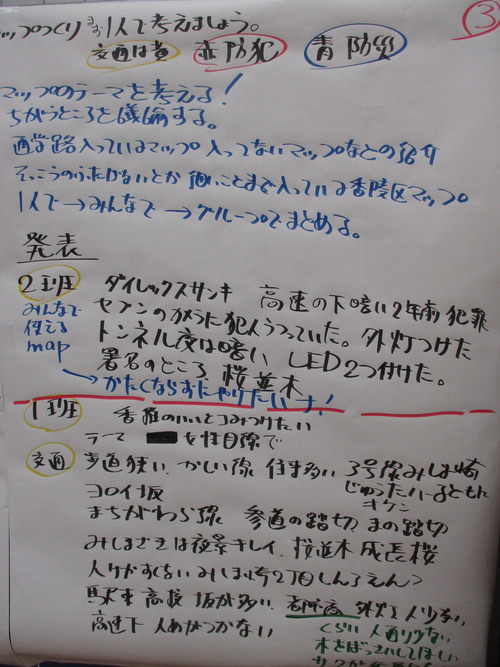 ③
マップつくり まず1人で考えましょう。
交通は黄 赤 防犯 青 防災
マップのテーマを考える!
ちがうところを議論する。
通学路入っているマップ 入ってないマップなどの紹介
そっこうのふたがないとか 細いことまで入っている香陵区マップ
1人で→みんなで→グループでまとめる。
発表
2班 ダイレックスサンキ 高速の下暗い2年前 犯罪
みんなで使えるmap
セブンのカメラに犯人うつっていた。外灯つけた
トンネル夜は暗い LED2つ付けた。
署名のところ 桜並木
→かたくならずにやりたいナ!
1班 香椎のいいとこみつけたい
テーマ 女性目線で
交通 歩道狭い、かしい線 住宅多い 3号線みしま崎
じゅうたい 子ども キケン
ヨロイ坂
まちがわら線 参道の踏切
みしまざきは夜景キレイ、桜並木 成長桜
人けがすくない みしま崎2丁目しんろえん?
駅東 高校 坂が多い 外灯 人少ない
高速下 人めがつかない
くらい 人通り少ない
木をばっさいしてほしい